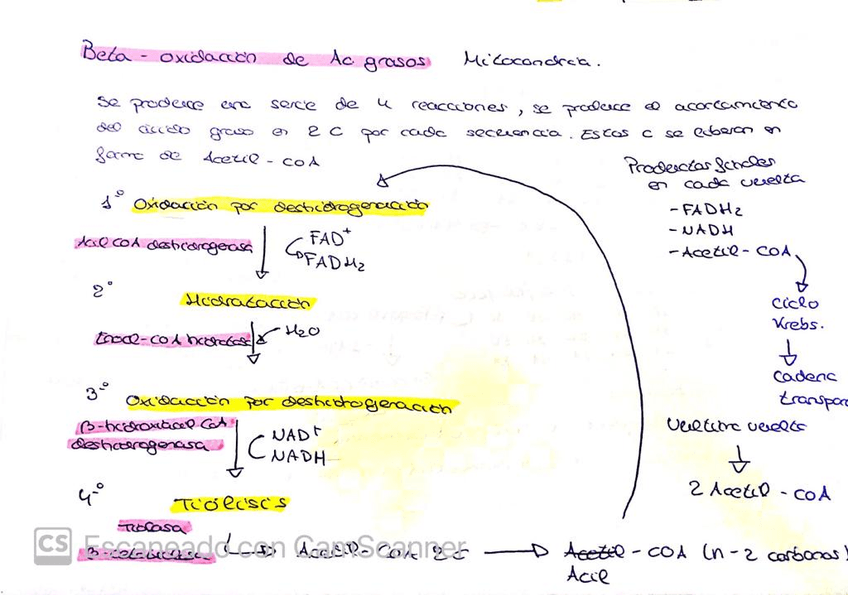 Beta - oxidación de Ac grasos Mitocondria.
Se produce una serie de 4 reacciones, se produce el acortamiento
del ácido graso en 2 C por cada secuencia. Estos C se liberan en
forma de Acetil - CoA
Productos finales
en cada vuelta
- FADH2
- NADH
- Acetil - COA
Ciclo
Krebs.
Cadena
transpor
Ultima vuelta
2 Acetil - COA
1º Oxidación por deshidrogenación
Acil COA deshidrogenasa
FAD+
FADH2
2º Hidratación
Enoil-COA hidratasa
H2O
3º Oxidación por deshidrogenación
β-hidroxiacil CoA
deshidrogenasa
NAD+
NADH
4º Tiólisis
Tiolasa
Acetil - COA 2C
Acetil - COA (n-2 carbonos)
Acil
CS Escaneado con CamScanner